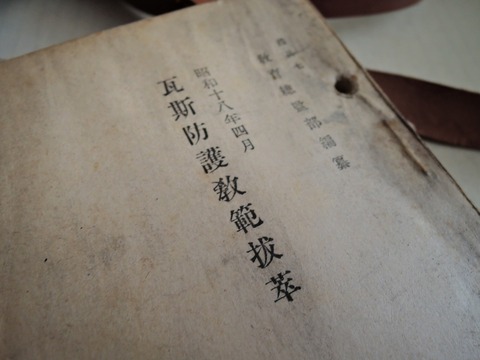 教育總監部編纂
昭和十八年四月
瓦斯防護教範拔萃